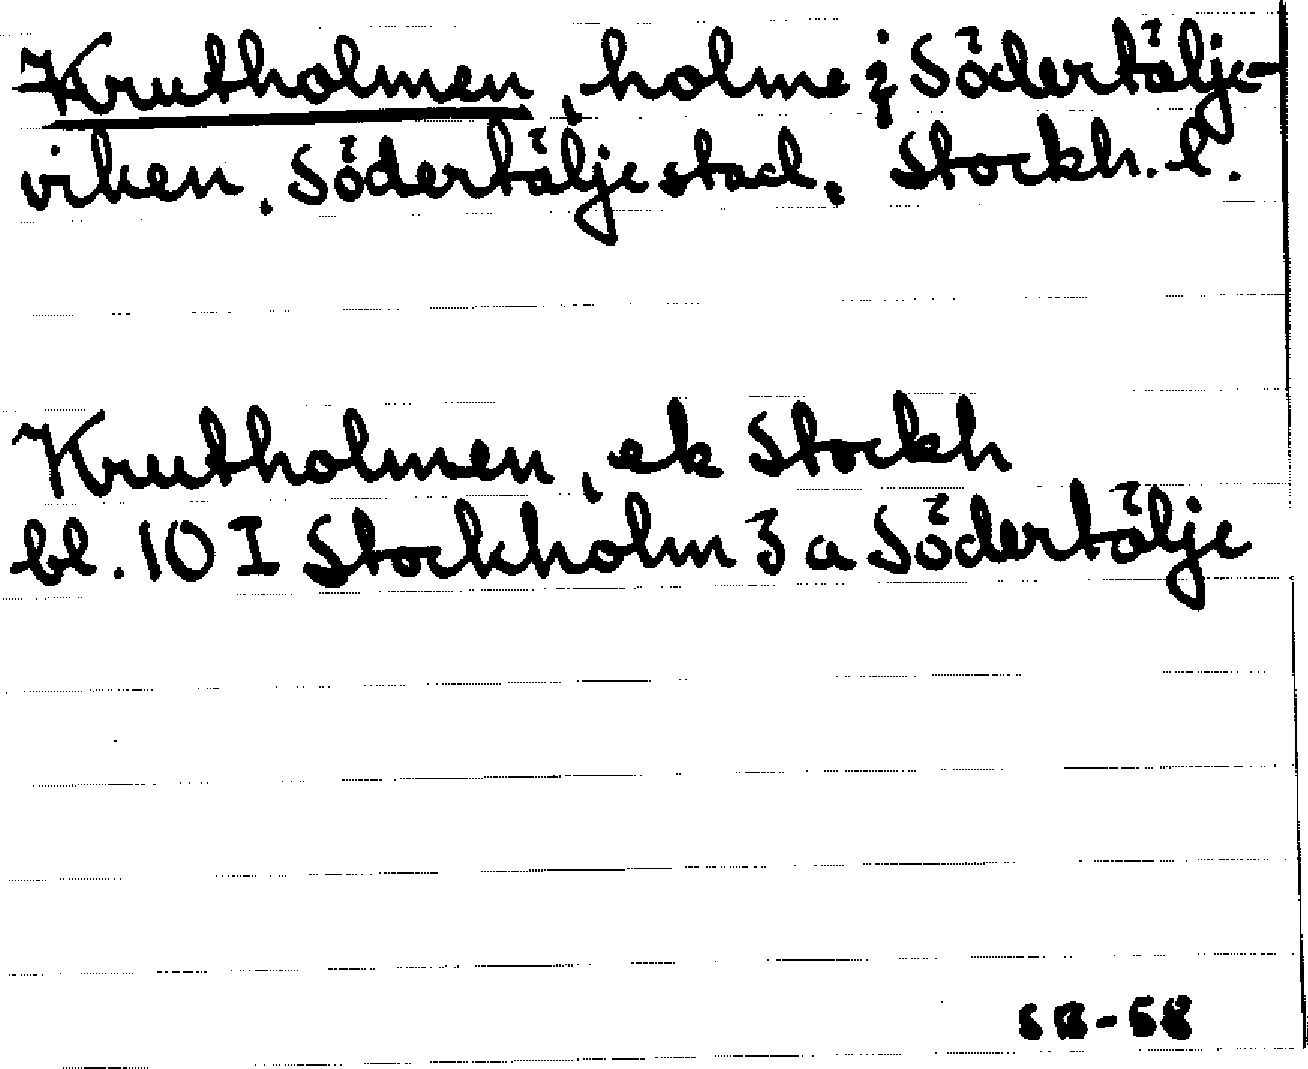 Krutholmen, holme i Södertälje-
viken. Södertälje stad. Stockh. l.
Krutholmen, ek Stockh
bl. 10 I Stockholm 3 a Södertälje
SB-58